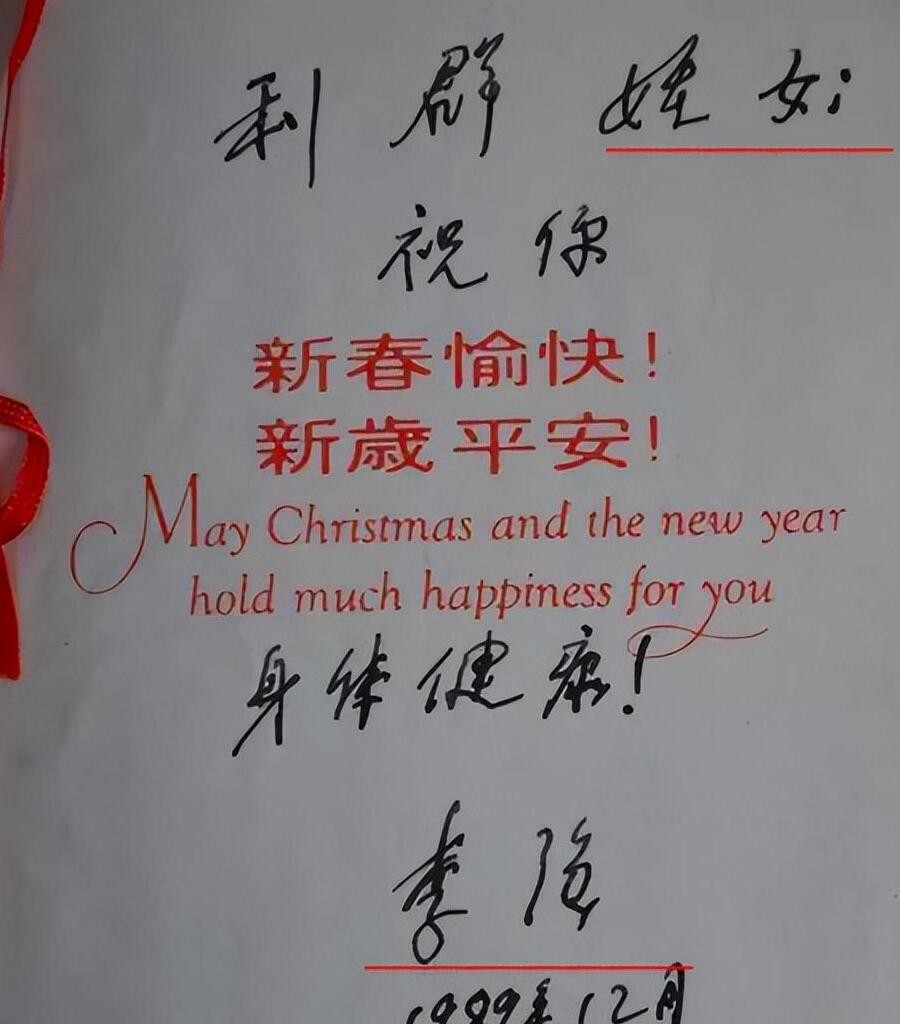 利群姪女:
祝你
新春愉快!
新歲平安!
May Christmas and the new year
hold much happiness for you
身体健康!
李隐
1999年12月